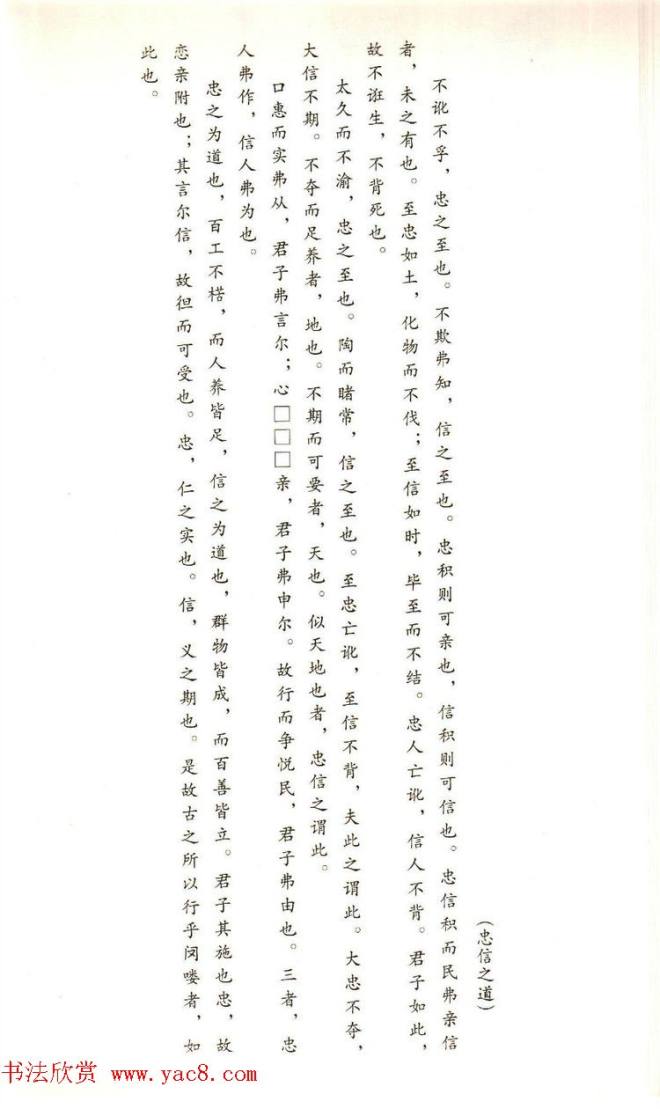 （忠信之道）
不讹不孚，忠之至也。不欺弗知，信之至也。忠积则可亲也，信积则可信也。忠信积而民弗亲信
者，未之有也。至忠如土，化物而不伐；至信如时，毕至而不结。忠人亡讹，信人不背。君子如此，
故不诳生，不背死也。
太久而不渝，忠之至也。陶而睹常，信之至也。至忠亡讹，至信不背，夫此之谓此。大忠不夺，
大信不期。不夺而足养者，地也。不期而可要者，天也。似天地也者，忠信之谓此。
口惠而实弗从，君子弗言尔；心□□□亲，君子弗申尔。故行而争悦民，君子弗由也。三者，忠
人弗作，信人弗为也。
忠之为道也，百工不楛，而人养皆足，信之为道也，群物皆成，而百善皆立。君子其施也忠，故
恋亲附也；其言尔信，故徂而可受也。忠，仁之实也。信，义之期也。是故古之所以行乎闵喽者，如
此也。
书法欣赏 www.yac8.com